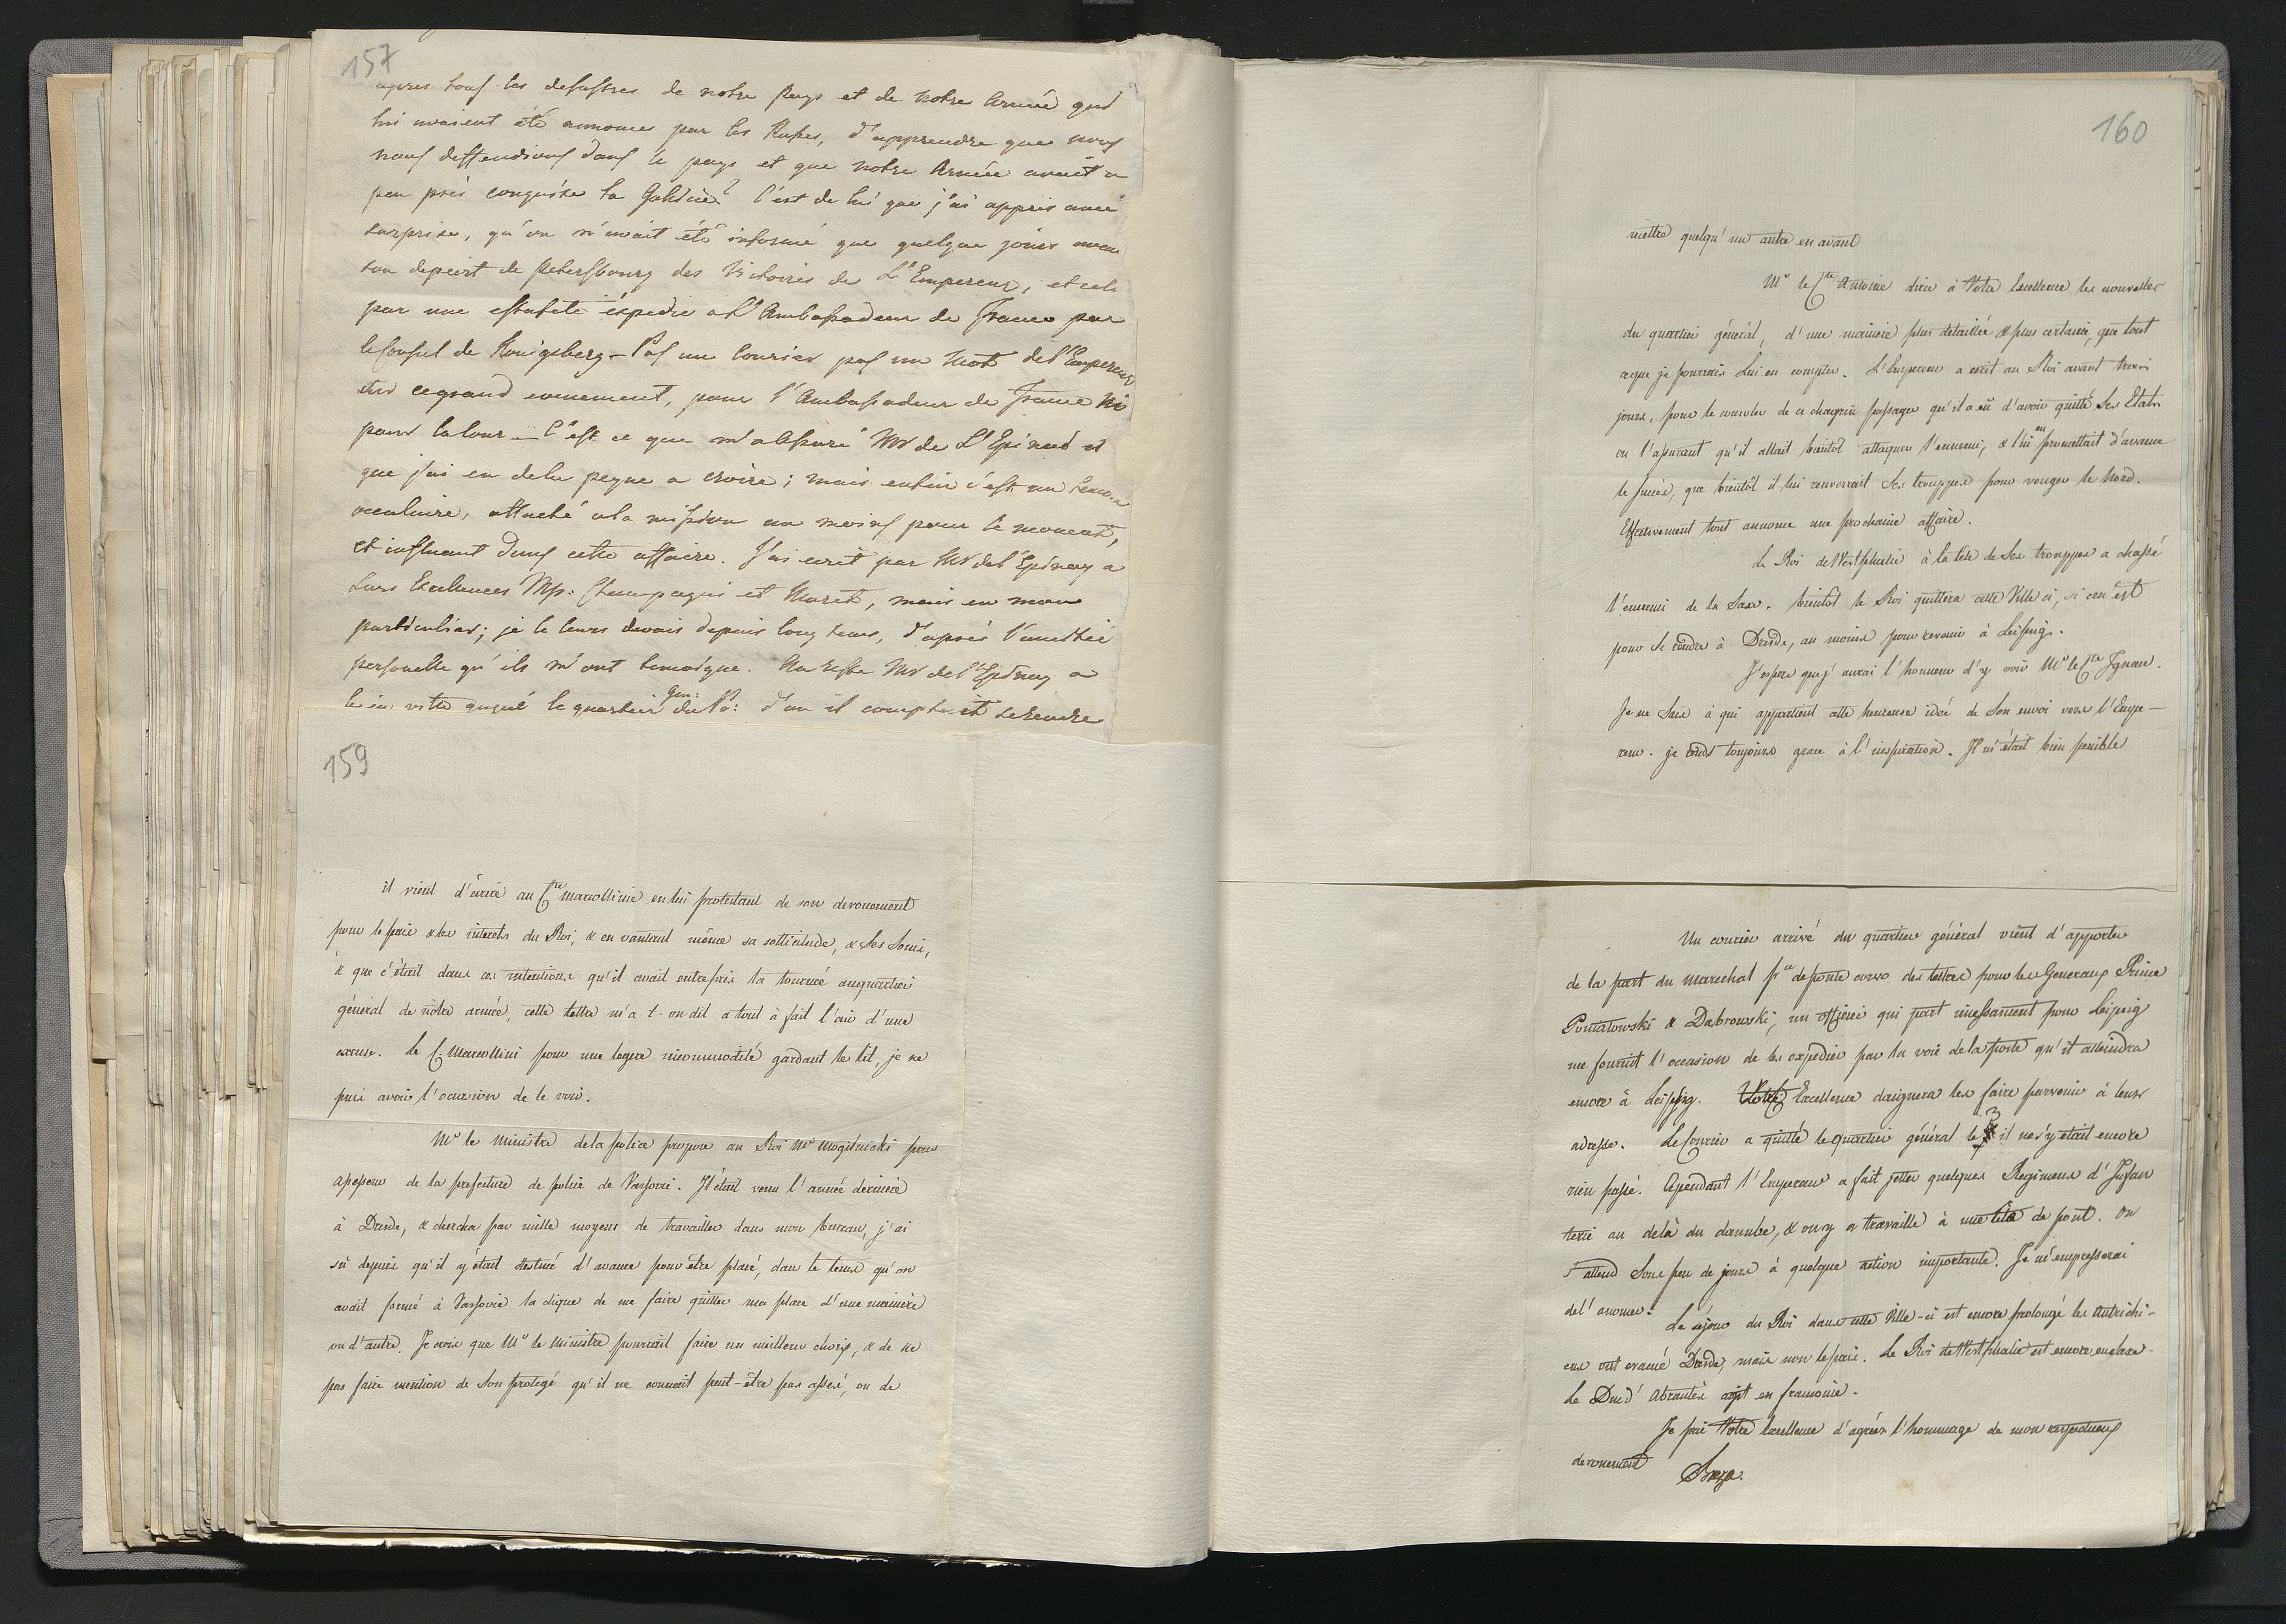 157
apres tous les desastres de notre pays et de notre Armée qui
lui avaient été annonces par les Russes, d'apprendre que nous
nous deffendions dans le pays et que notre Armée avait a
peu près conquise la Galicie? C'est de lui que j'ai appris avec
surprise, qu'on n'avait été informé que quelque jours avant
son depart de Petersbourg des Victoires de L'Empereur, et cela
par une estafete expedié a l'Ambassadeur de France par
le Consul de Konigsberg — Pas un Courier pas un Mot de l'Empereur
sur ce grand evenement, pour l'Ambassadeur de France Ni
pour la Cour — C'est ce que m'a assuré Mr de L'Epiney et
que j'ai eu de la peyne a croire; mais enfin c'est un
occulaire, attaché a la mission au moins pour le moment,
et influant dans cette affaire. J'ai ecrit par Mr de l'Epiney a
Leurs Excellences Mss: Champagni et Maret, mais en mon
particulier; je le leurs devais depuis long tems, d'après l'amitié
personelle qu'ils m'ont temoigne. Au reste Mr de l'Epiney a
bien vite gagné le quartier Gen: du d'ou il comptait se rendre
159
il vient d'écrire au Cte Marcollini en lui protestant de son devouement
pour le païs & les interets du Roi, & en vantant même sa sollicitude, & ses soins,
& que c'était dans ces intentions qu'il avait entrepris la tournée au quartier
général de nôtre armée, cette lettre m'a t-on dit a tout à fait l'air d'une
excuse. Le C. Marcollini pour une legere incommodité gardant le lit, je ne
puis avoir l'occasion de le voir.
Mr le Ministre de la police propose au Roi Mr Mogilnicki pour
assesseur de la prefecture de police de Varsovie. Il était venu l'année derniere
à Dresde, & chercha par mille moyens de travailler dans mon bureau, j'ai
sû depuis qu'il y était destiné d'avance pour être placé, dans le tems qu'on
avait formé à Varsovie la clique de me faire quitter ma place d'une maniere
ou d'autre. Je crois que Mr le Ministre pourrait faire un meilleur choix, & de ne
pas faire mention de son protegé qu'il ne connait peut-être pas assés, ou de
160
mettre quelqu'un autre en avant
Mr le Cte Antoine dira à Votre Excellence les nouvelles
du quartier général, d'une maniere plus detaillée & plus certaine, que tout
ce que je pourrais Lui en compter. L'Empereur a ecrit au Roi avant trois
jours, pour le consoler de ce chagrin passager qu'il a eû d'avoir quitté Ses Etats
en l'assurant qu'il allait bientôt attaquer l'ennemi, & lui en promettait d'avance
le succès, que bientôt il lui renverrait Ses trouppes pour venger le Nord.
Effectivement tout annonce une prochaine affaire.
Le Roi de Westphalie à la tête de Ses trouppes a chassé
l'ennemi de la Saxe. bientôt le Roi quittera cette Ville ci, si ce n'est
pour se rendre à Dresde, au moins pour revenir à Leipzig.
J'espere que j'aurai l'honneur d'y voir Mr le Cte Ignace.
Je ne sais à qui appartient cette heureuse idée de Son envoi vers l'Empe-
reur. je rends toujours grace à l'inspiration. Il m'était bien penible
Un courier arrivé du quartier général vient d'apporter
de la part du Marechal Pce de ponte corvo des lettres pour les Generaux Prince
Poniatowski & Dabrowski, un officier qui part incessament pour Leipzig
me fournit l'occasion de les expedier par la voie de la poste qu'il atteindra
encore à Leipzig. Votre Excellence daignera les faire parvenir à leur
adresse. Le Courier a quitté le quartier général le 3 il ne s'y était encore
rien passé. Cependant l'Empereur a fait jetter quelques Regimens d'Infan
terie au delà du danube, & on y a travaillé à une tête de pont. On
s'attend sous peu de jours à quelque action importante. Je m'empresserai
de l'anoncer.
Le séjour du Roi dans cette Ville-ci est encore prolongé les Autrichi-
ens ont evacué Dresde, mais non le païs. Le Roi de Westphalie est encore en Saxe.
Le Duc d'Abrantès agit en franconie.
Je prie Votre Excellence d'agréer l'hommage de mon respectueux
devouement
Breza.